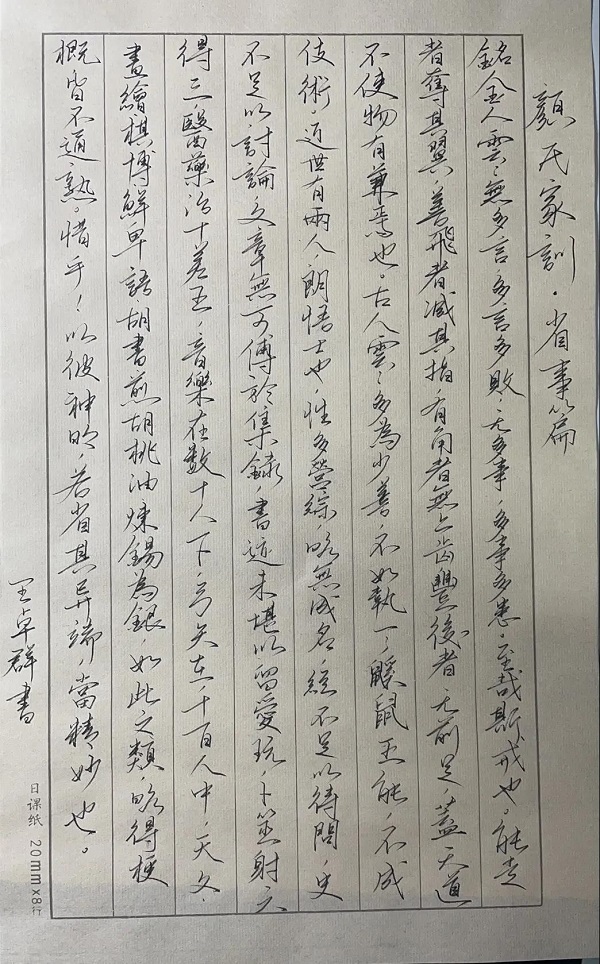 顔氏家訓·省事篇
銘金人雲：無多言，多言多敗；無多事，多事多患。至哉斯戒也。能走
者奪其翼，善飛者減其指，有角者無上齒，豐後者無前足，蓋天道
不使物有兼焉也。古人雲：多為少善，不如執一；鼫鼠五能，不成
伎術。近世有兩人，朗悟士也，性多營綜，略無成名，經不足以待問，史
不足以討論，文章無可傳於集錄，書迹未堪以留愛玩，卜筮射六
得三，醫藥治十差五，音樂在數十人下，弓矢在千百人中，天文、
畫繪、棋博、鮮卑語、胡書、煎胡桃油、煉錫為銀，如此之類，略得梗
概，皆不通熟。惜乎！以彼神明，若省其异端，當精妙也。
王卓群書
日课纸 20mm×8行